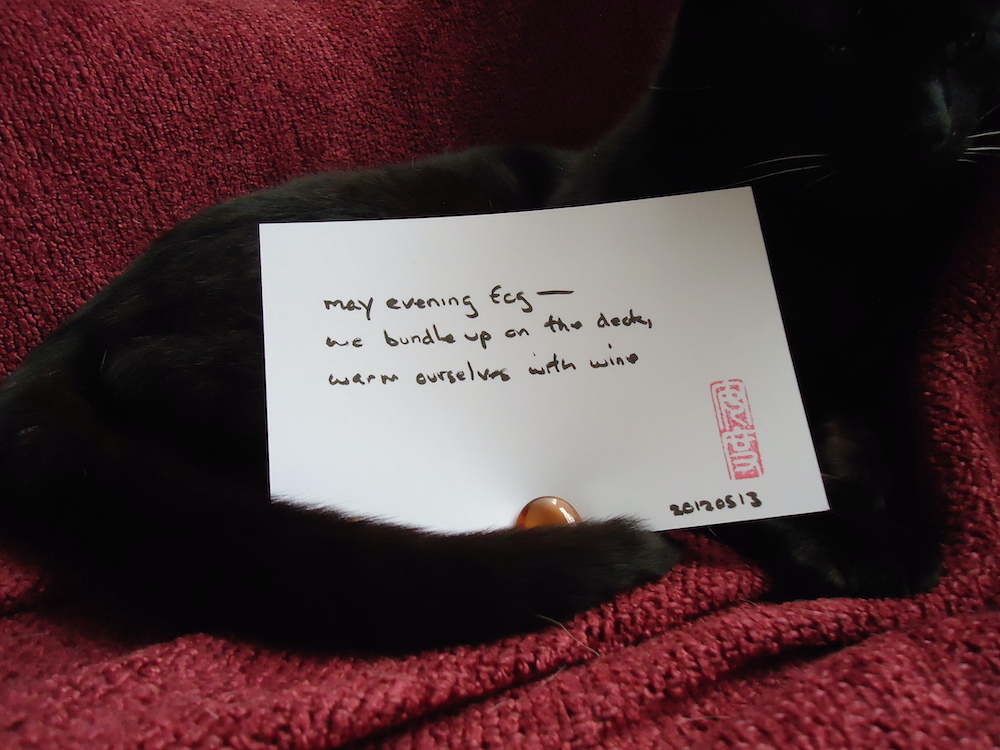 may evening fog —
we bundle up on the deck,
warm ourselves with wine
20120513